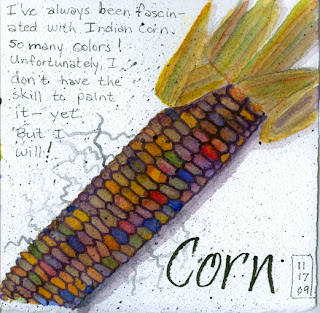 I've always been fascin-
ated with Indian Corn.
So many colors!
Unfortunately, I
don't have the
skill to paint
it - yet.
But I
will!
Corn
11
17
09